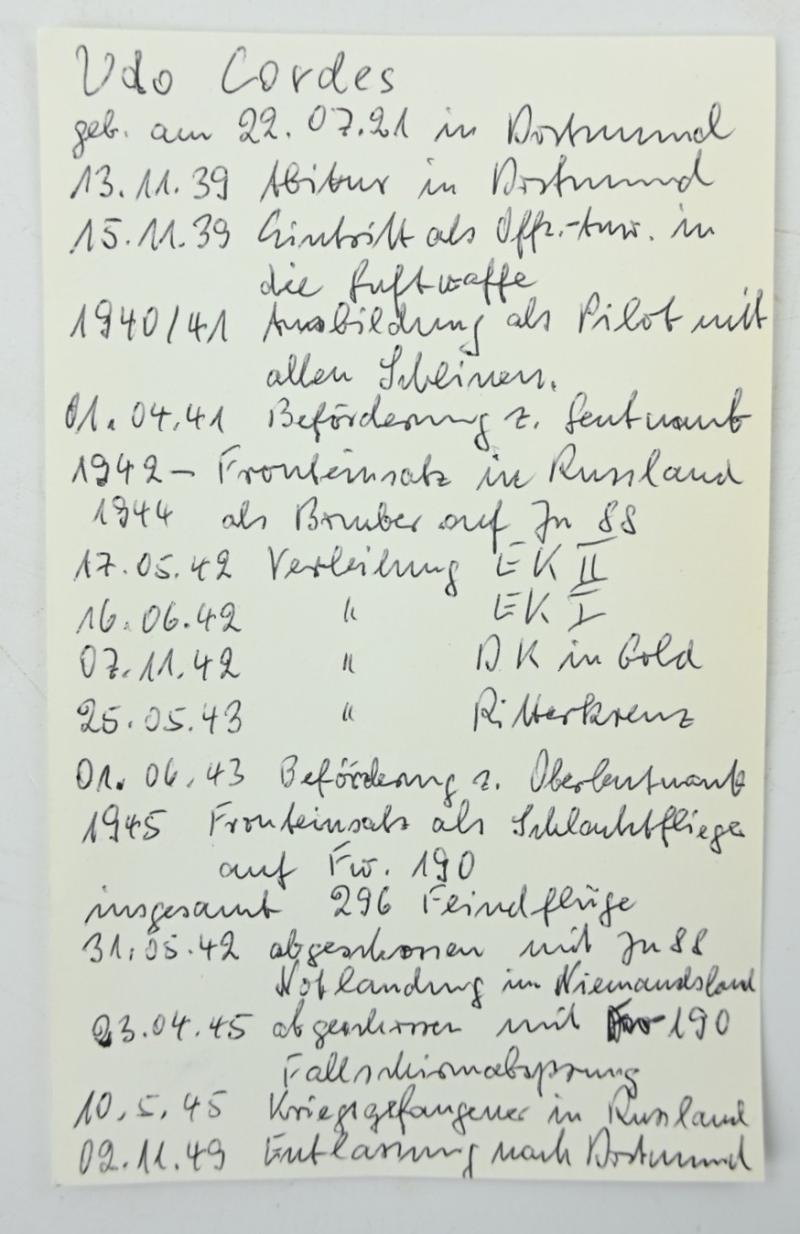 Udo Cordes
geb. am 22.07.21 in Dortmund
13.11.39 Abitur in Dortmund
15.11.39 Eintritt als Offz.-Anw. in
die Luftwaffe
1940/41 Ausbildung als Pilot mit
allen Scheinen.
01.04.41 Beförderung z. Leutnant
1942 - Fronteinsatz in Russland
1944 als Bomber auf Ju 88
17.05.42 Verleihung EK II
16.06.42 " EK I
07.11.42 " DK in Gold
25.05.43 " Ritterkreuz
01.06.43 Beförderung z. Oberleutnant
1945 Fronteinsatz als Schlachtflieger
auf Fw. 190
insgesamt 296 Feindflüge
31.05.42 abgeschossen mit Ju 88
Notlandung im Niemandsland
23.04.45 abgeschossen mit 190
Fallschirmabsprung
10.5.45 Kriegsgefangener in Russland
02.11.49 Entlassung nach Dortmund